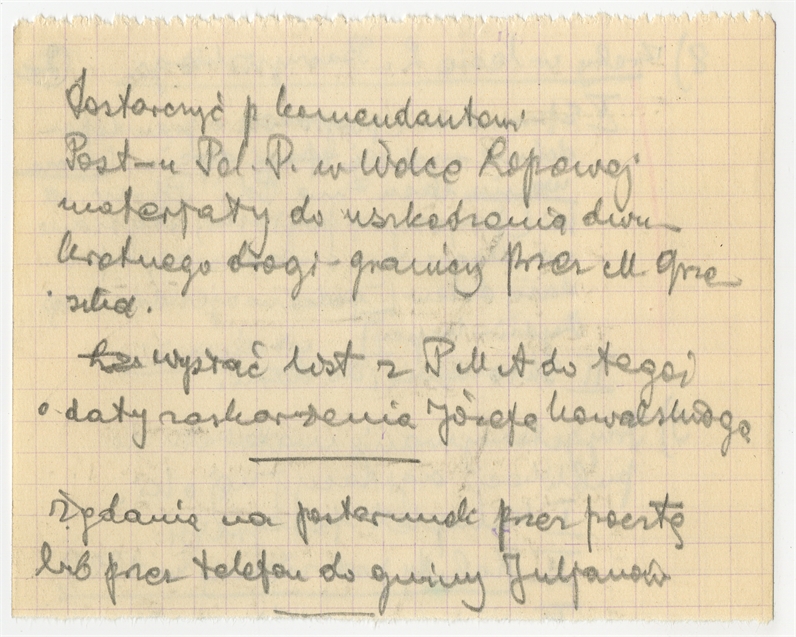 Dostarczyć p. komendantowi
Post-u Pol. P. w Wólce Łopowej
materjały do uszkodzenia dwu-
kretnego drogi-granicy przez M Grze
szka.
wysłać list z P M A do tegoż
o daty zaskarżenia Józefa Kowalskiego
Żądania na posterunek przez pocztę
lub przez telefon do gminy Juljanów